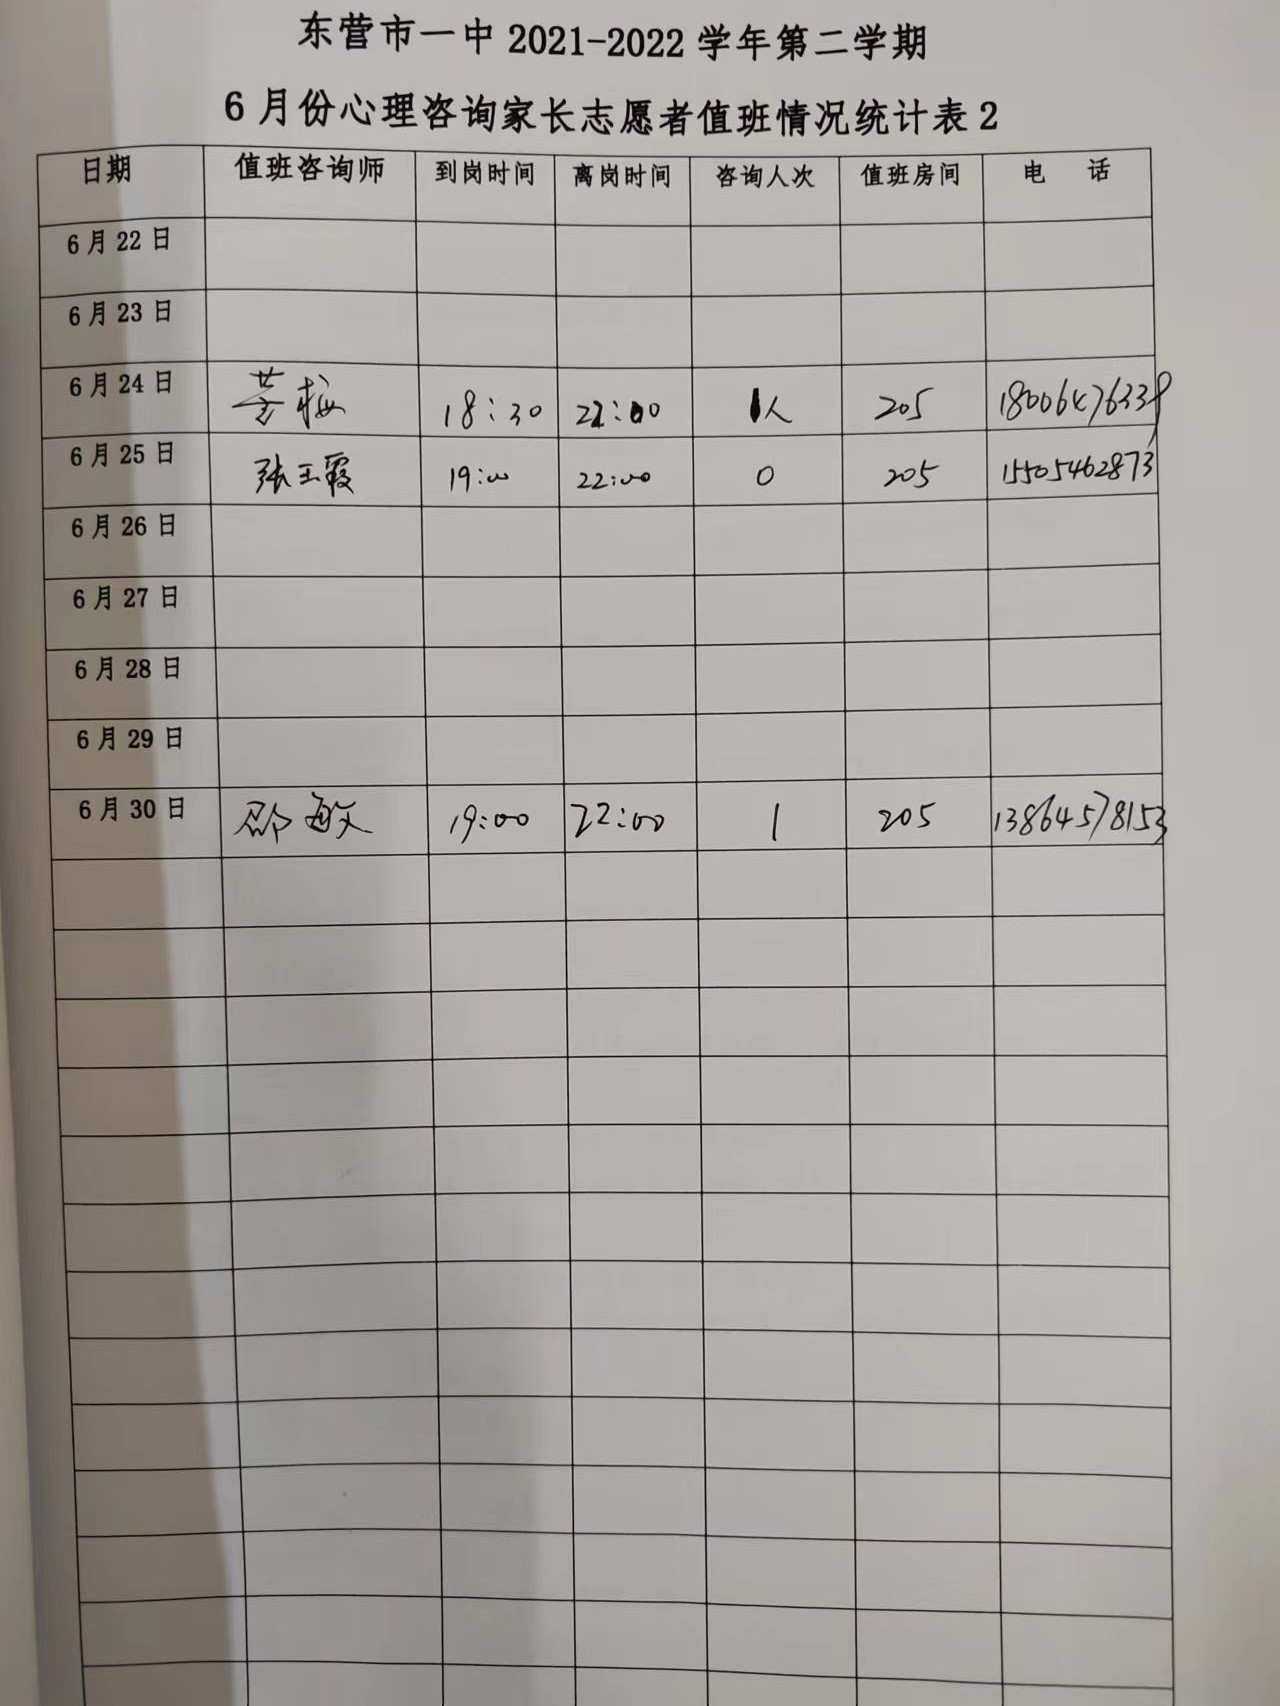 东营市一中 2021-2022 学年第二学期
6 月份心理咨询家长志愿者值班情况统计表 2
日期 值班咨询师 到岗时间 离岗时间 咨询人次 值班房间 电 话
6 月 22 日
6 月 23 日
6 月 24 日 梅 18:30 22:00 1人 205
6 月 25 日 张玉霞 19:00 22:00 0 205 15505462873
6 月 26 日
6 月 27 日
6 月 28 日
6 月 29 日
6 月 30 日 邵敏 19:00 22:00 1 205 13864578153